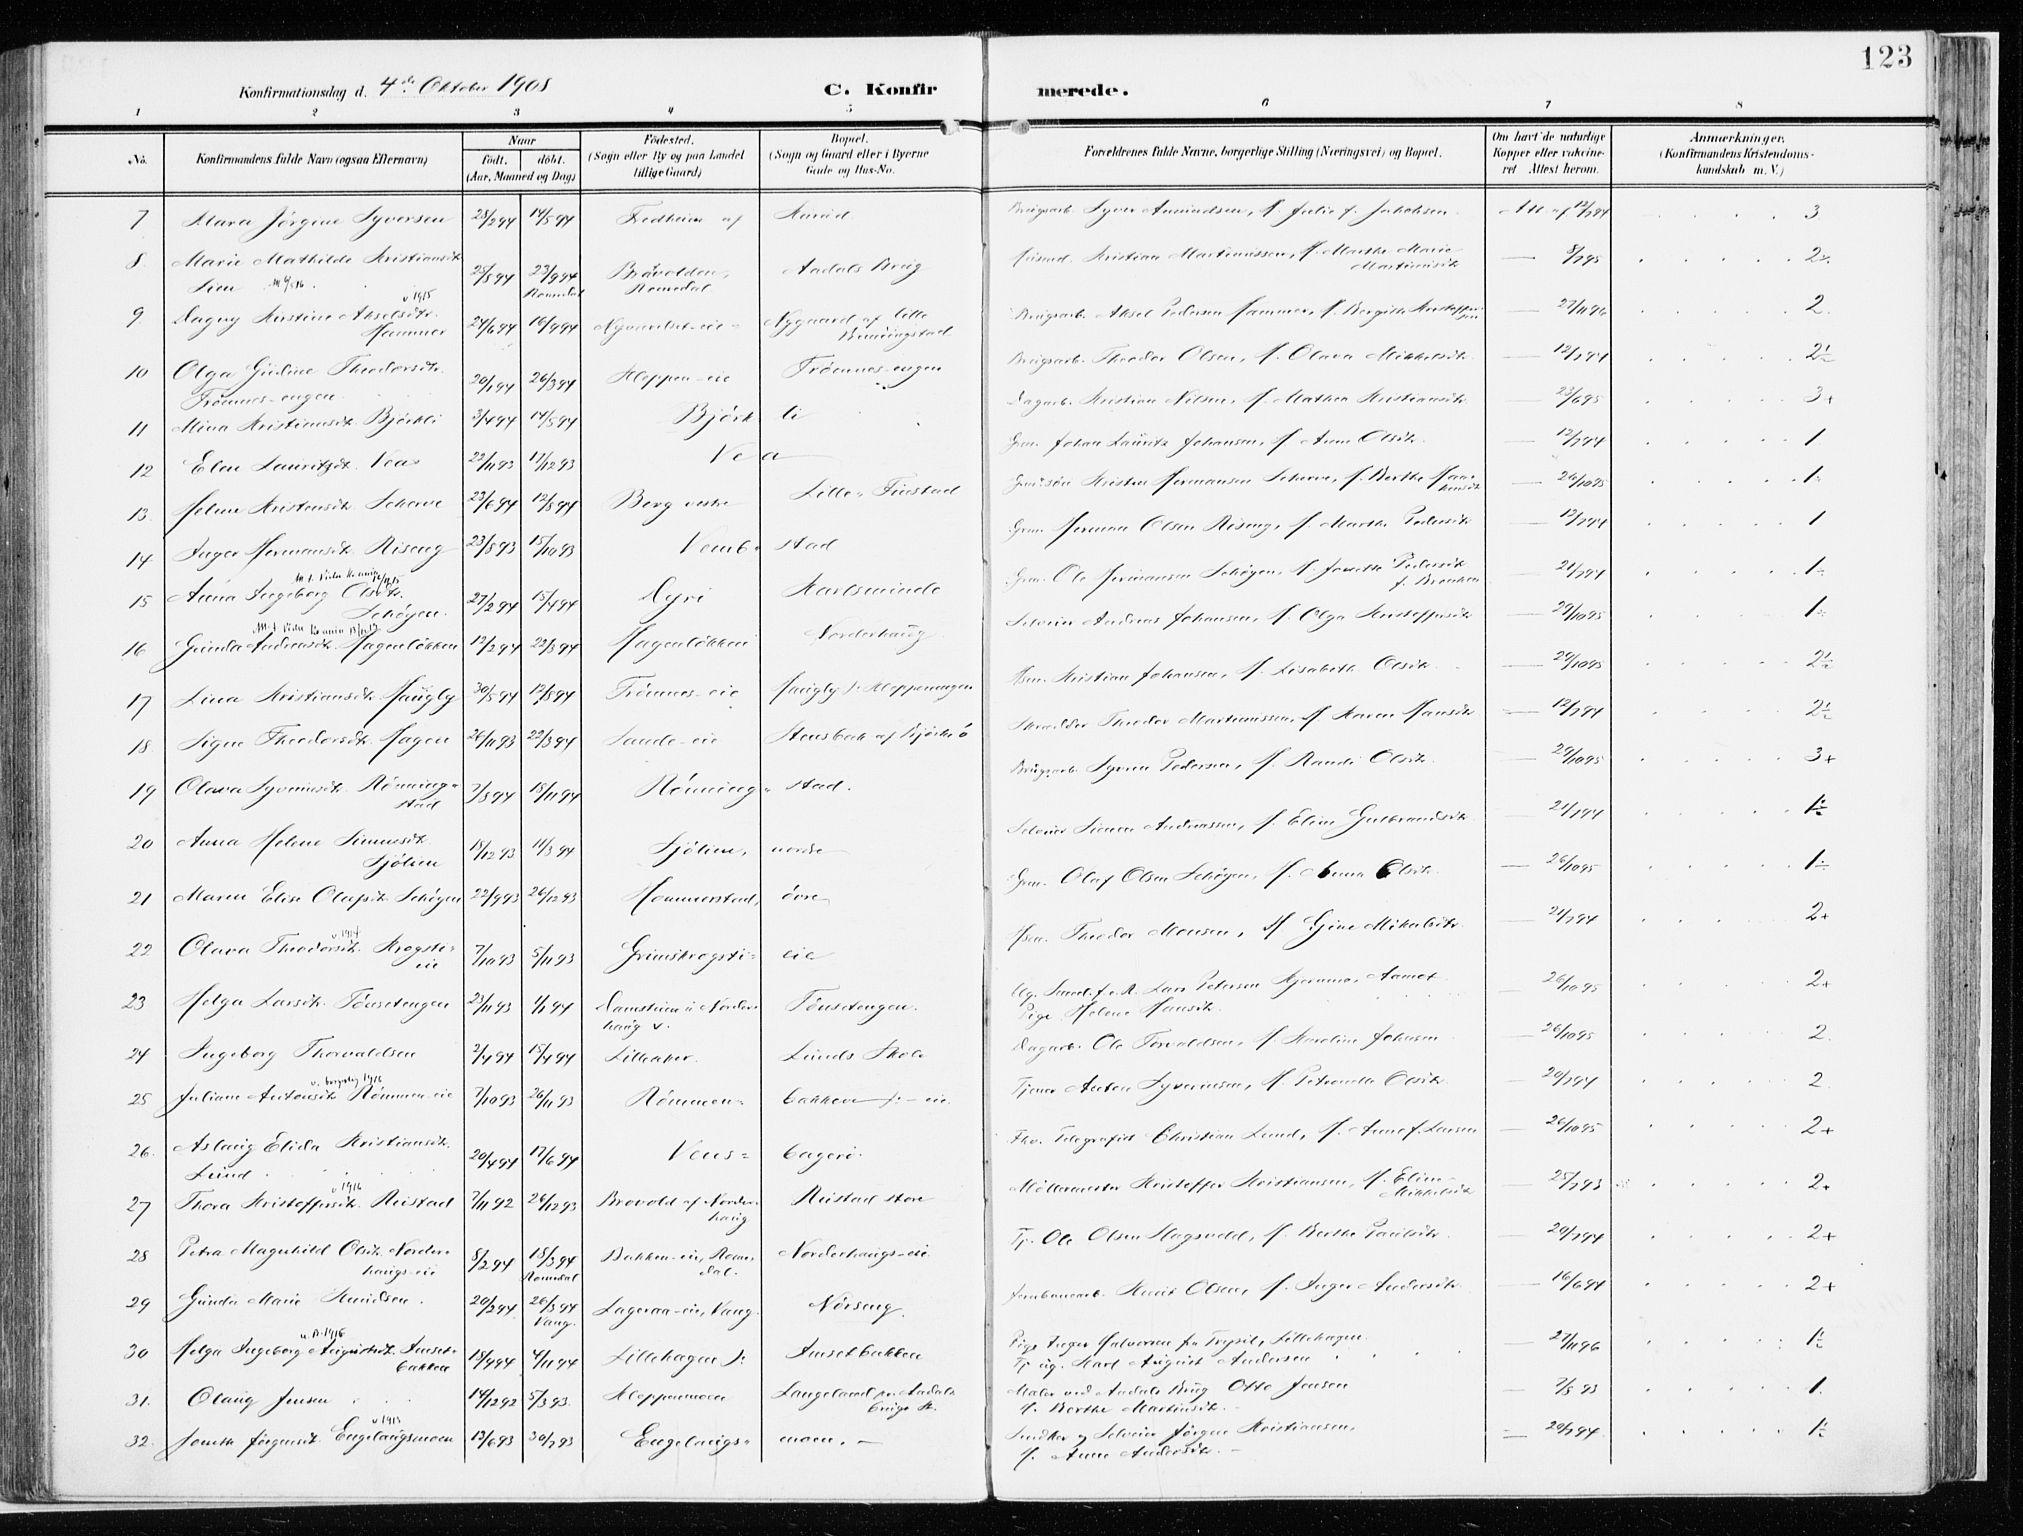 123
Konfirmationsdag d. 4de Oktober 1908 C. Konfirmerede.
1 2 3 4 5 6 7 8
No. Konfirmandens fulde Navn (ogsaa Efternavn) Naar födt. döbt. (Aar, Maaned og Dag) Födested. (Sogn eller By og paa Landet tillige Gaard) Bopæl. (Sogn og Gaard eller i Byerne Gade og Hus-No.) Forældrenes fulde Navne, borgerlige Stilling (Næringsvei) og Bopæl. Om havt de naturlige Kopper eller vakcineret Attest herom. Anmærkninger. (Konfirmandens Kristendomskundskab m. V.)
7 Mara Jörgine Syversen 28/2 94 14/5 94 Fredheim af Aarud Brugsarb. Syver Amundsen, H. Julie f. Jakobsen Att af 12/7 94 3
8 Marie Mathilde Kristiansdt. Lien 25/8 94 23/9 94 Romedal Bråvolden, Romedal Aadals Brug Kristian Martinussen, H. Marthe Marie Martinusdt. — 8/7 95 2
9 Dagny Kirstine Akselsdtr. Hammer v 1915 24/6 94 16/9 94 Nygaard af lille Rønningstad Brugsarb. Aksel Pedersen Hammer, H. Bergitte — 27/11 96 2.
10 Olga Gudine Theodorsdt. Frönnes-engen 20/1 94 26/3 94 Kloppen-eie Frönnes-engen Brugsarb. Theodor Olsen, H. Olava Mikkelsdt. — 12/7 94 2½
11 Mina Kristiansdt. Björkli 3/4 94 14/5 94 Björk li Dagarb. Kristian Nilsen, H. Mathea Kristiansdt. — 23/6 95 3+
12 Elen Lauritzdt. Vea 22/11 93 17/12 93 Ve a Grm. Johan Lauritz Johansen, H. Anne Olsdt. — 12/7 94 1
13 Helene Kristensdt. Scherve 23/6 94 12/8 94 Berg vestre Lille-Finstad Kristen Hermansen Scherve, H. Berthe — 26/10 95 1-
14 Inger Hermansdt. Riseng 23/8 93 15/10 93 Vemb- stad Grm. Herman Olsen Riseng, H. Marthe Pedersdt. — 12/7 94 1
15 Anna Ingeborg Olsdt. Schøyen 27/2 94 15/4 94 Dyri Karlsminde Grm. Ole Hermansen Schøyen, H. Josette Pedersdt. — 21/7 94 1-
16 Gunda Andreasdt. Hagenløkken 12/2 94 22/3 94 Hagenløkken Norderhaug Selveier Andreas Johansen, H. Olga Kristoffersdt. — 29/10 95 1-
17 Lina Kristiansdt. Haugly 30/5 94 12/8 94 Frönnes-eie Haugly p. Kloppenengen Hsm. Kristian Johansen, H. Lisabeth Olsdt. — 29/10 95 2½
18 Signe Theodorsdt. Hagen 26/11 93 22/3 94 Sande-eie Stensbak af Bjørkeö Skrædder Theodor Martinussen, H. Karen Hansdt. — 12/7 94 2½
19 Olava Syverinsdt. Rønningstad 7/8 94 18/11 94 Rønning- stad. Brugsarb. Syverin Pedersen, H. Randi Olsdt. — 29/10 95 3+
20 Anna Helene Simensdt. Sjölien 18/12 93 11/3 94 Sjölien, nordre Selveier Simen Andreassen, H. Eline Gulbrandsdt. — 21/7 94 1½
21 Maren Elise Olafsdt. Schøyen 22/9 93 26/12 93 Hommerstad, övre Grm. Olaf Olsen Schøyen, H. Anna Olsdt. — 26/10 95 1-
22 Olava Theodorsdt. Krogsti-eie v 1914 7/10 93 5/11 93 Grimskrogsti- eie Hsm. Theodor Monsen, H Gjine Mikalsdt. — 21/7 94 2+
23 Helga Larsdt. Tönsetengen 23/11 93 1/1 94 Damstuen u Norderhaug v. Tönsetengen. Ug. Lars Petersen Hjerama, Aamot Pige Helene Hansdt. — 26/10 95 2+
24 Ingeborg Thorvaldsen 2/4 94 15/4 94 Lilleaker. Lunds Skole Dagarb. Ole Torvaldsen, H. Karoline Johansen — 26/10 95 2.
25 Juliane Antonsdt. Rømmen-eie 7/10 93 26/11 93 Rømmen- bakken p.-eie. Tjener Anton Syverinsen, H. Petronelle Olsdt. — 20/7 94 2.
26. Aslaug Elida Kristiansdt. Lund 20/4 94 17/6 94 Vens- bageri Fhv. Telegrafist Christian Lund, H. Anne f. Larsen — 26/10 95 2+
27 Thora Kristoffersdt. Rustad v 1916 7/11 92 26/12 93 Brovold af Norderhaug Rustad store Möllemester Kristoffer Kristiansen, H. Eline Mikkelsdt. — 25/7 93 2+
28 Petra Magnhild Olsdt. Norderhaugs-eie 8/2 94 18/3 94 Romedal Bakken-eie, Romedal. Norderhaugs-eie Tj. Ole Olsen Hagsveld, H. Berthe Paulsdt. — 20/7 94 2+
29 Gunda Marie Knudsen. 20/2 94 26/3 94 Vang. Lageraa-eie, Vang. Nørseng Jernbanearb. Knut Olsen, H. Inger Andersdt. — 16/6 94 2+
30 Helga Ingeborg Augustsdt. Aunsetbakken 18/9 94 4/11 94 Lillehagen Aunsetbakken Pige Inger Halvorsen fra Trysil, Lillehagen. Tj. ug. Karl August Andersen — 27/11 96 1½
31. Olaug Jensen 14/12 92 5/3 93. Kloppenmoen Langeland pr. Aadals Brugs St. Maler ved Aadals Brug Otto Jensen H. Berthe Martinsdt. — 7/8 93 1.
32. Josette Jörgensdt. Engelaugsmoen v 1913 13/6 93 30/7 93 Engelaugs- moen. — Snedker og Selveier Jörgen Kristiansen, H. Anne Andersdt. — 20/7 94 1½